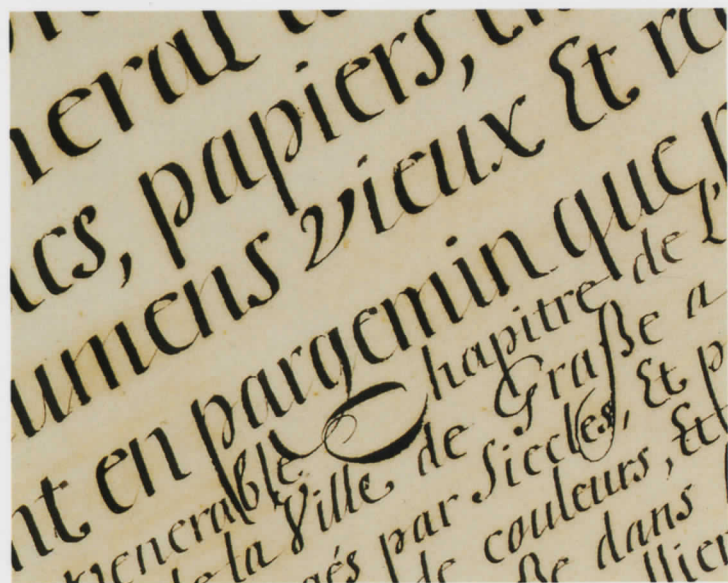 neral
cs, papiers,
umens vieux Et
nt en pargemin que
venerable Chapitre de L
de la Ville de Graße a
gés par Siecles, Et p
de couleurs, Et
ße dans